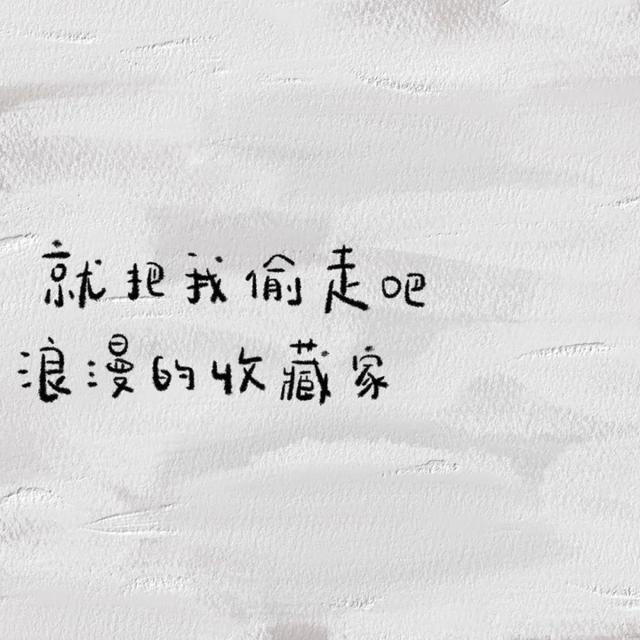 就把我偷走吧
浪漫的收藏家